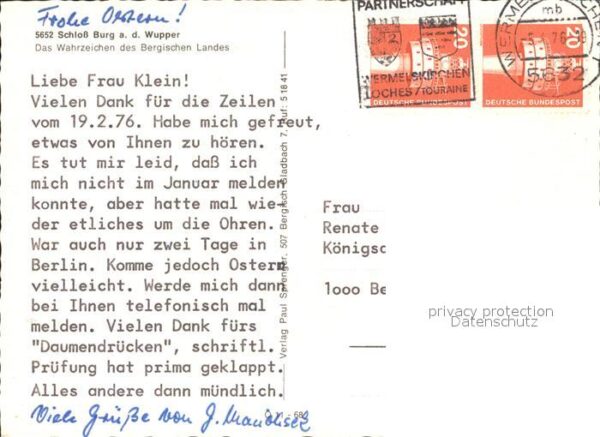 Frohe Ostern!
5652 Schloß Burg a. d. Wupper
Das Wahrzeichen des Bergischen Landes
Liebe Frau Klein!
Vielen Dank für die Zeilen
vom 19.2.76. Habe mich gefreut,
etwas von Ihnen zu hören.
Es tut mir leid, daß ich
mich nicht im Januar melden
konnte, aber hatte mal wie-
der etliches um die Ohren.
War auch nur zwei Tage in
Berlin. Komme jedoch Ostern
vielleicht. Werde mich dann
bei Ihnen telefonisch mal
melden. Vielen Dank fürs
"Daumendrücken", schriftl.
Prüfung hat prima geklappt.
Alles andere dann mündlich.
Viele Grüße von J.
Verlag Paul Sprenger, 507 Bergisch Gladbach 7, Ruf: 5 18 41
PARTNERSCHAFT
WERMELSKIRCHEN
LOCHES/TOURAINE
WERMELSKIRCHEN
mb
5632
20
20
DEUTSCHE BUNDESPOST
DEUTSCHE BUNDESPOST
Frau
Renate
Königsc
1000 Be
privacy protection
Datenschutz